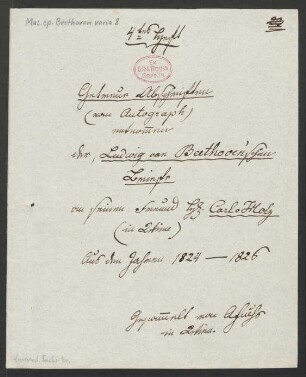 Mus. ep. Beethoven varia 8
4tes Heft
Ex
Biblioth. Regia
Berolin.
Getreue Abschriften
(vom Autograph)
entnommen
der, Ludwig van Beethoven'schen
Briefe
an seinen Freund H: Carl Holz
(in Wien)
Aus den Jahren 1824 — 1826
Gesammelt von AFuchs
in Wien.